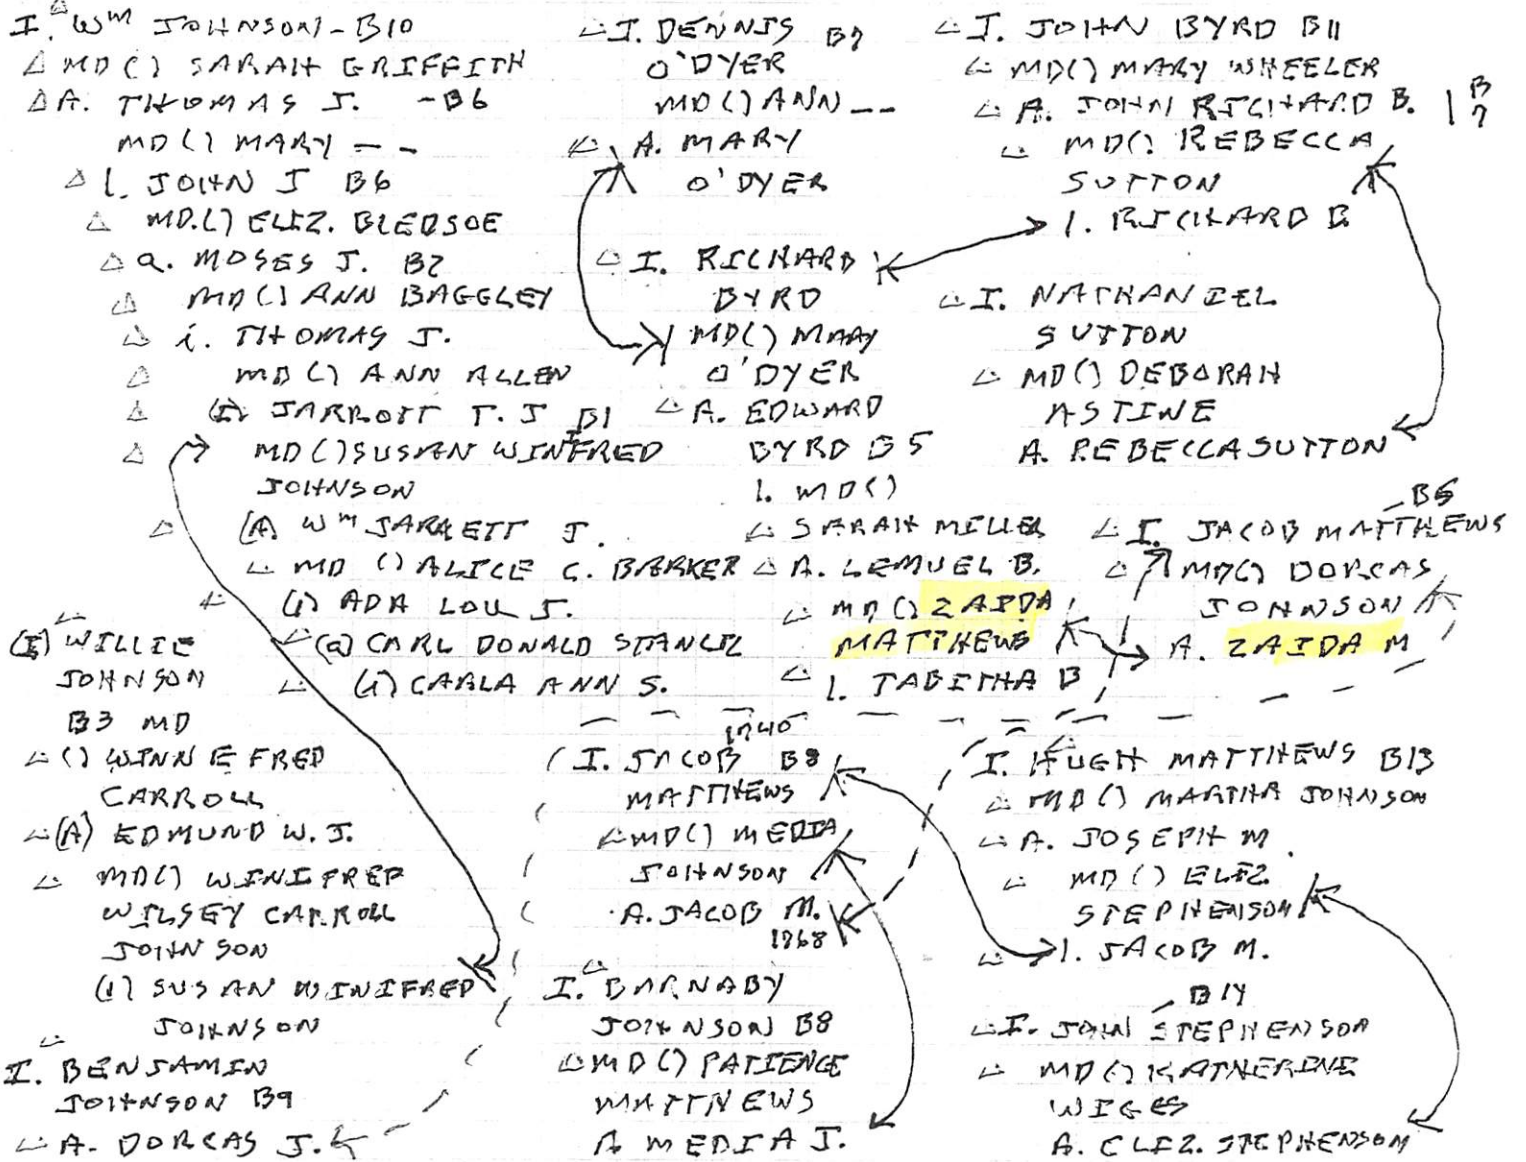 I. Wm JOHNSON - B10
MD () SARAH GRIFFITH
A. THOMAS J. - B6
MD () MARY - -
1. JOHN J B6
MD. () ELIZ. BLEDSOE
a. MOSES J. B2
MD () ANN BAGGLEY
i. THOMAS J.
MD () ANN ALLEN
(I) JARROTT T. J B1
MD () SUSAN WINIFRED
JOHNSON
(A) Wm JARRETT J.
MD () ALICE C. BARKER
(1) ADA LOU J.
(a) CARL DONALD STANCIL
(i) CARLA ANN S.
(I) WILLIE
JOHNSON
B3 MD
() WINNEFRED
CARROLL
(A) EDMUND W. J.
MD () WINIFRED
WILSEY CARROLL
JOHNSON
(1) SUSAN WINIFRED
JOHNSON
I. BENJAMIN
JOHNSON B9
A. DORCAS J.
I. DENNIS B7
O'DYER
MD () ANN - -
A. MARY
O'DYER
I. RICHARD
BYRD
MD () MARY
O'DYER
A. EDWARD
BYRD B5
1. MD ()
SARAH MILLER
A. LEMUEL B.
MD () ZAIDA
MATTHEWS
1. TABITHA B
1740
I. JACOB B8
MATTHEWS
MD () MEDIA
JOHNSON
A. JACOB M.
1768
I. BARNABY
JOHNSON B8
MD () PATIENCE
MATTHEWS
A MEDIA J.
I. JOHN BYRD B11
MD () MARY WHEELER
A. JOHN RICHARD B. B7
MD () REBECCA
SUTTON
1. RICHARD B.
I. NATHANIEL
SUTTON
MD () DEBORAH
ASTINE
A. REBECCA SUTTON
B5
I. JACOB MATTHEWS
MD () DORCAS
JOHNSON
A. ZAIDA M
I. HUGH MATTHEWS B13
MD () MARTHA JOHNSON
A. JOSEPH M.
MD () ELIZ.
STEPHENSON
1. JACOB M.
B14
I. JOHN STEPHENSON
MD () KATHERINE
WIGES
A. ELIZ. STEPHENSON